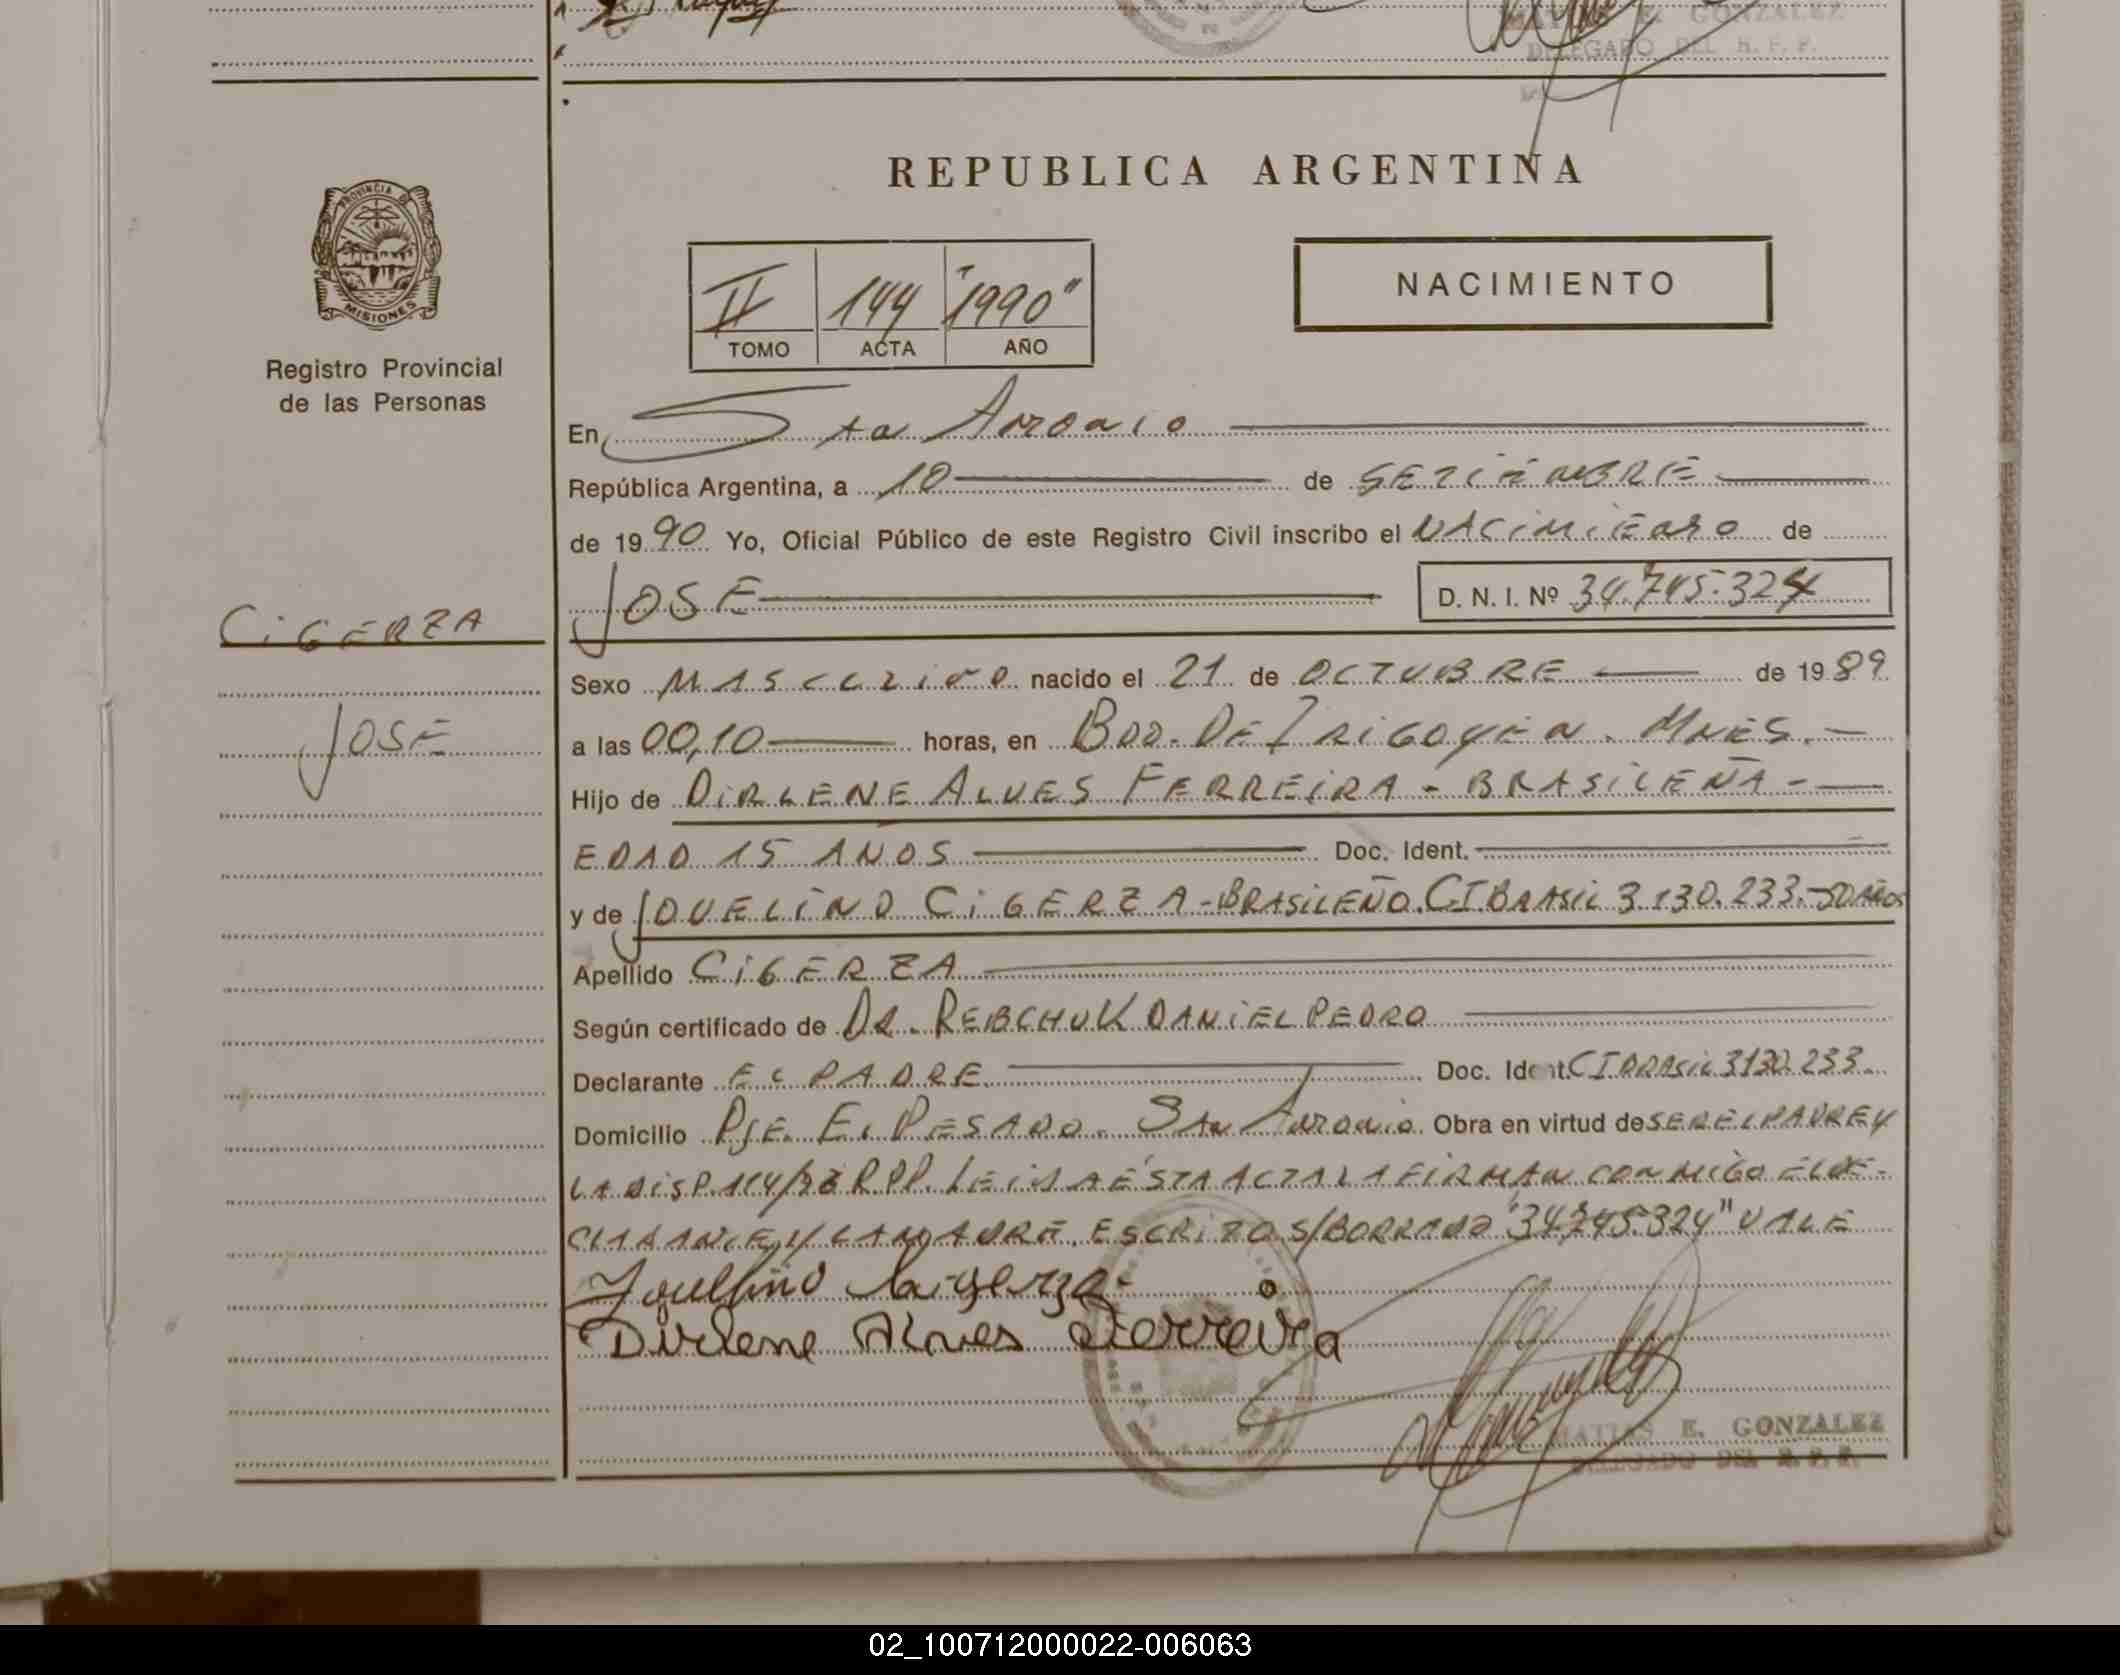 E. GONZALEZ
DELEGADO DEL R. P. P.
REPUBLICA ARGENTINA
PROVINCIA DE
MISIONES
Registro Provincial
de las Personas
II 144 "1990"
TOMO ACTA AÑO
NACIMIENTO
En Sta Antonio
República Argentina, a 10 de SETIEMBRE
de 1990 Yo, Oficial Público de este Registro Civil inscribo el NACIMIENTO de
JOSE D. N. I. Nº 34.745.324
CIGERZA
JOSE
Sexo MASCULINO nacido el 21 de OCTUBRE de 1989
a las 00,10 horas, en BDO. DE IRIGOYEN. MNES.-
Hijo de DIRLENE ALVES FERREIRA - BRASILEÑA -
EDAD 15 AÑOS Doc. Ident.
y de JOVELINO CIGERZA - BRASILEÑO. CI. BRASIL 3.130.233.- 50 AÑOS
Apellido CIGERZA
Según certificado de DR. REBCHUK DANIEL PEDRO
Declarante EL PADRE Doc. Ident. CI BRASIL 3130.233.
Domicilio PJE. EL PESADO. SAN ANTONIO. Obra en virtud de SER EL PADRE Y
LA DISP. 114/ R.P.P. LEIDA ESTA ACTA LA FIRMAN CONMIGO EL DE-
CLARANTE Y LA MADRE. ESCRITO S/BORRADO "34.745.324" VALE
Cigerza
Dirlene Alves Ferreira
MATIAS E. GONZALEZ
DELEGADO DEL R. P. P.
02_100712000022-006063